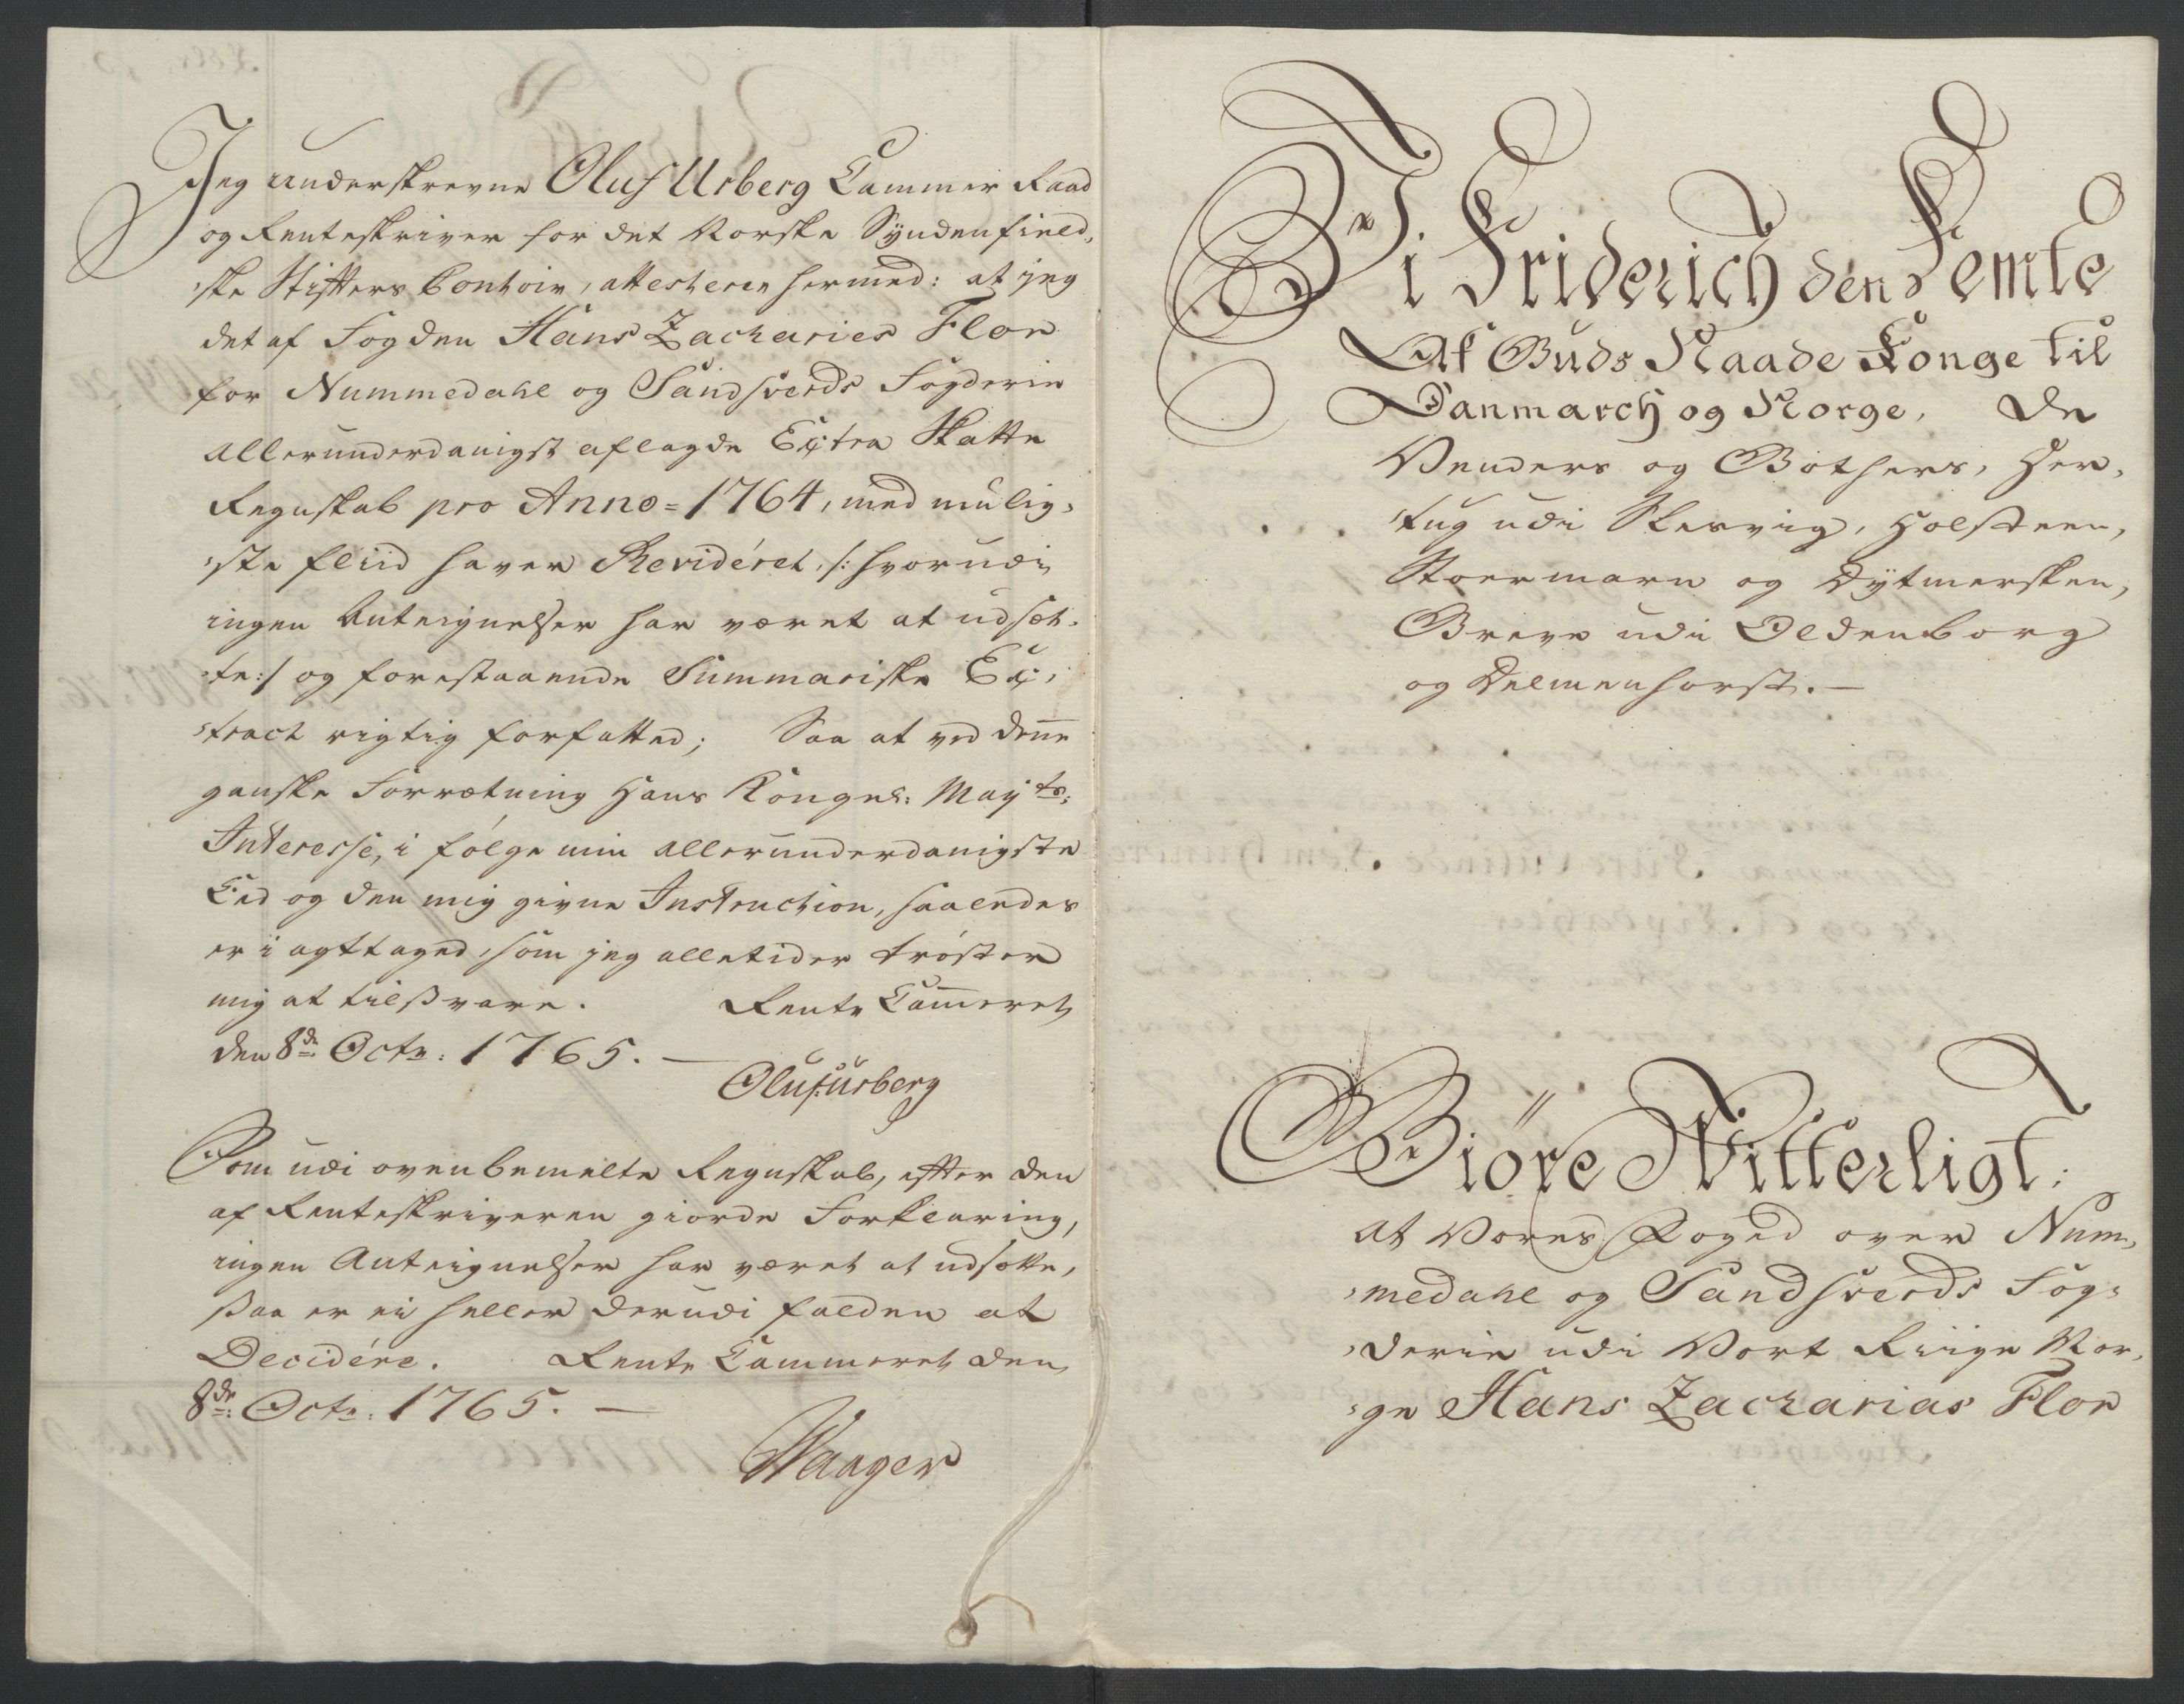 Jeg underskrevne Oluf Urberg Cammer Raad
og Renteskriver for det Norske Syndenfield,
ske Stifters Contoir, attesterer hermed: at jeg
det af Fogden Hans Zacharies Flor
for Nummedahl og Sandsverds Fogderie
allerunderdanigst aflagde Extra Skatte
Regnskab pro Anno=1764, med mülig,
ste fliid haver Revidéret, /: hvorudi
ingen Anteignelser har været at udsæt,
te:/ og forestaaende Summariske Ex,
tract rigtig forfatted; Saa at ved denne
ganske Forrætning Hans Kongel: Mayts:
Interesse, i følge min allerunderdanigste
Eed og den mig givne Instruction, saaledes
er i agttaged, som jeg alletider trøster
mig at tilsvare. Rente Cammeret
den 8de Octr: 1765. —
Oluf Urberg
Som udi ovenbemelte Regnskab, efter den
af Renteskriveren giorde Forklaring,
ingen Anteignelser har været at udsætte,
saa er ei heller derudi falden at
Decidére. Rente Cammeret den
8de Octr: 1765. —
Waager
Vi Friderich den Femte
Af Guds Naade Konge til
Danmarch og Norge, De
Venders og Gothers, Her,
tug udi Slesvig, Holsteen,
Stoermarn og Dytmersken,
Greve udi Oldenborg
og Delmenhorst. —
Giöre Vitterligt:
At Vores Foged over Num,
medahl og Sandsverds Fog,
derie udi Vort Riige Nor,
ge Hans Zacharias Flor